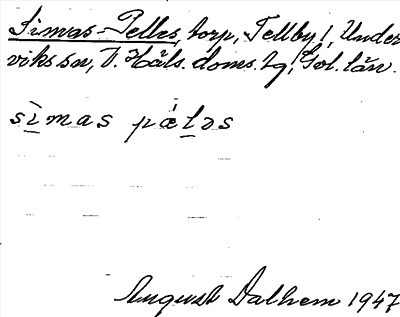 Simas-Pelles, torp, Tellby 1, Under
viks sn, V. Häls. doms. tg, Gvl. län.
sìmas pǽləs
August Dalhem 1947